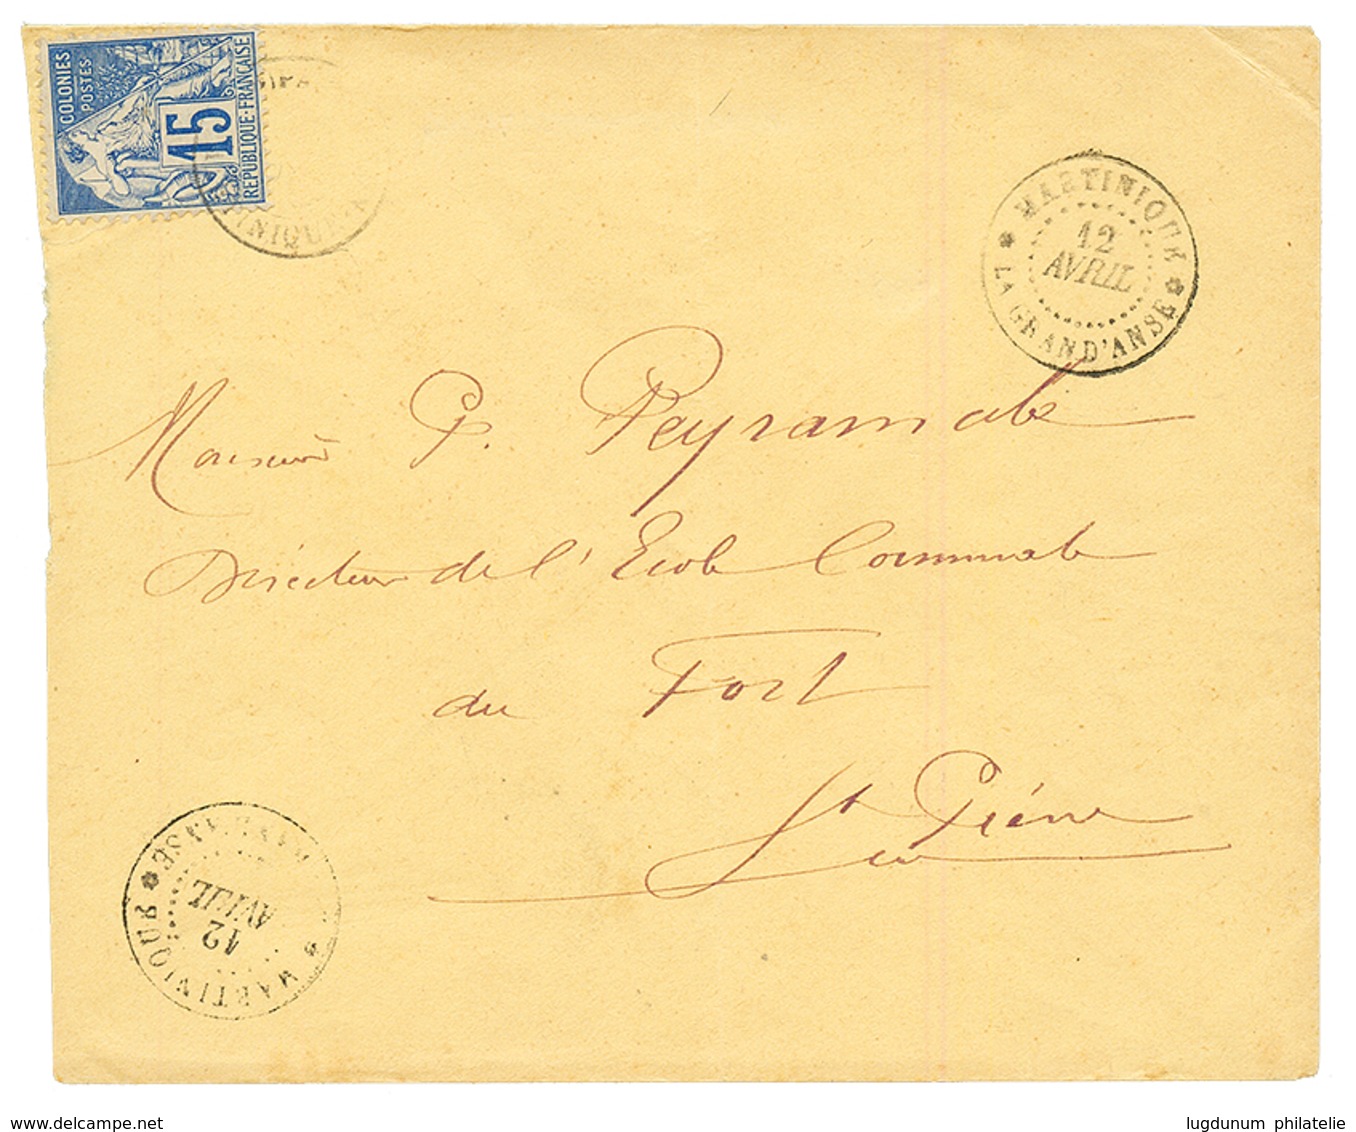 COLONIES
POSTES
15
REPUBLIQUE FRANÇAISE
MARTINIQUE
12
AVRIL
LA GRAND'ANSE
Monsieur G. Peyramale
Directeur de l'Ecole Communale
du Fort
St Pierre
12
AVRIL
MARTINIQUE
www.delcampe.net
lugdunum philatelie